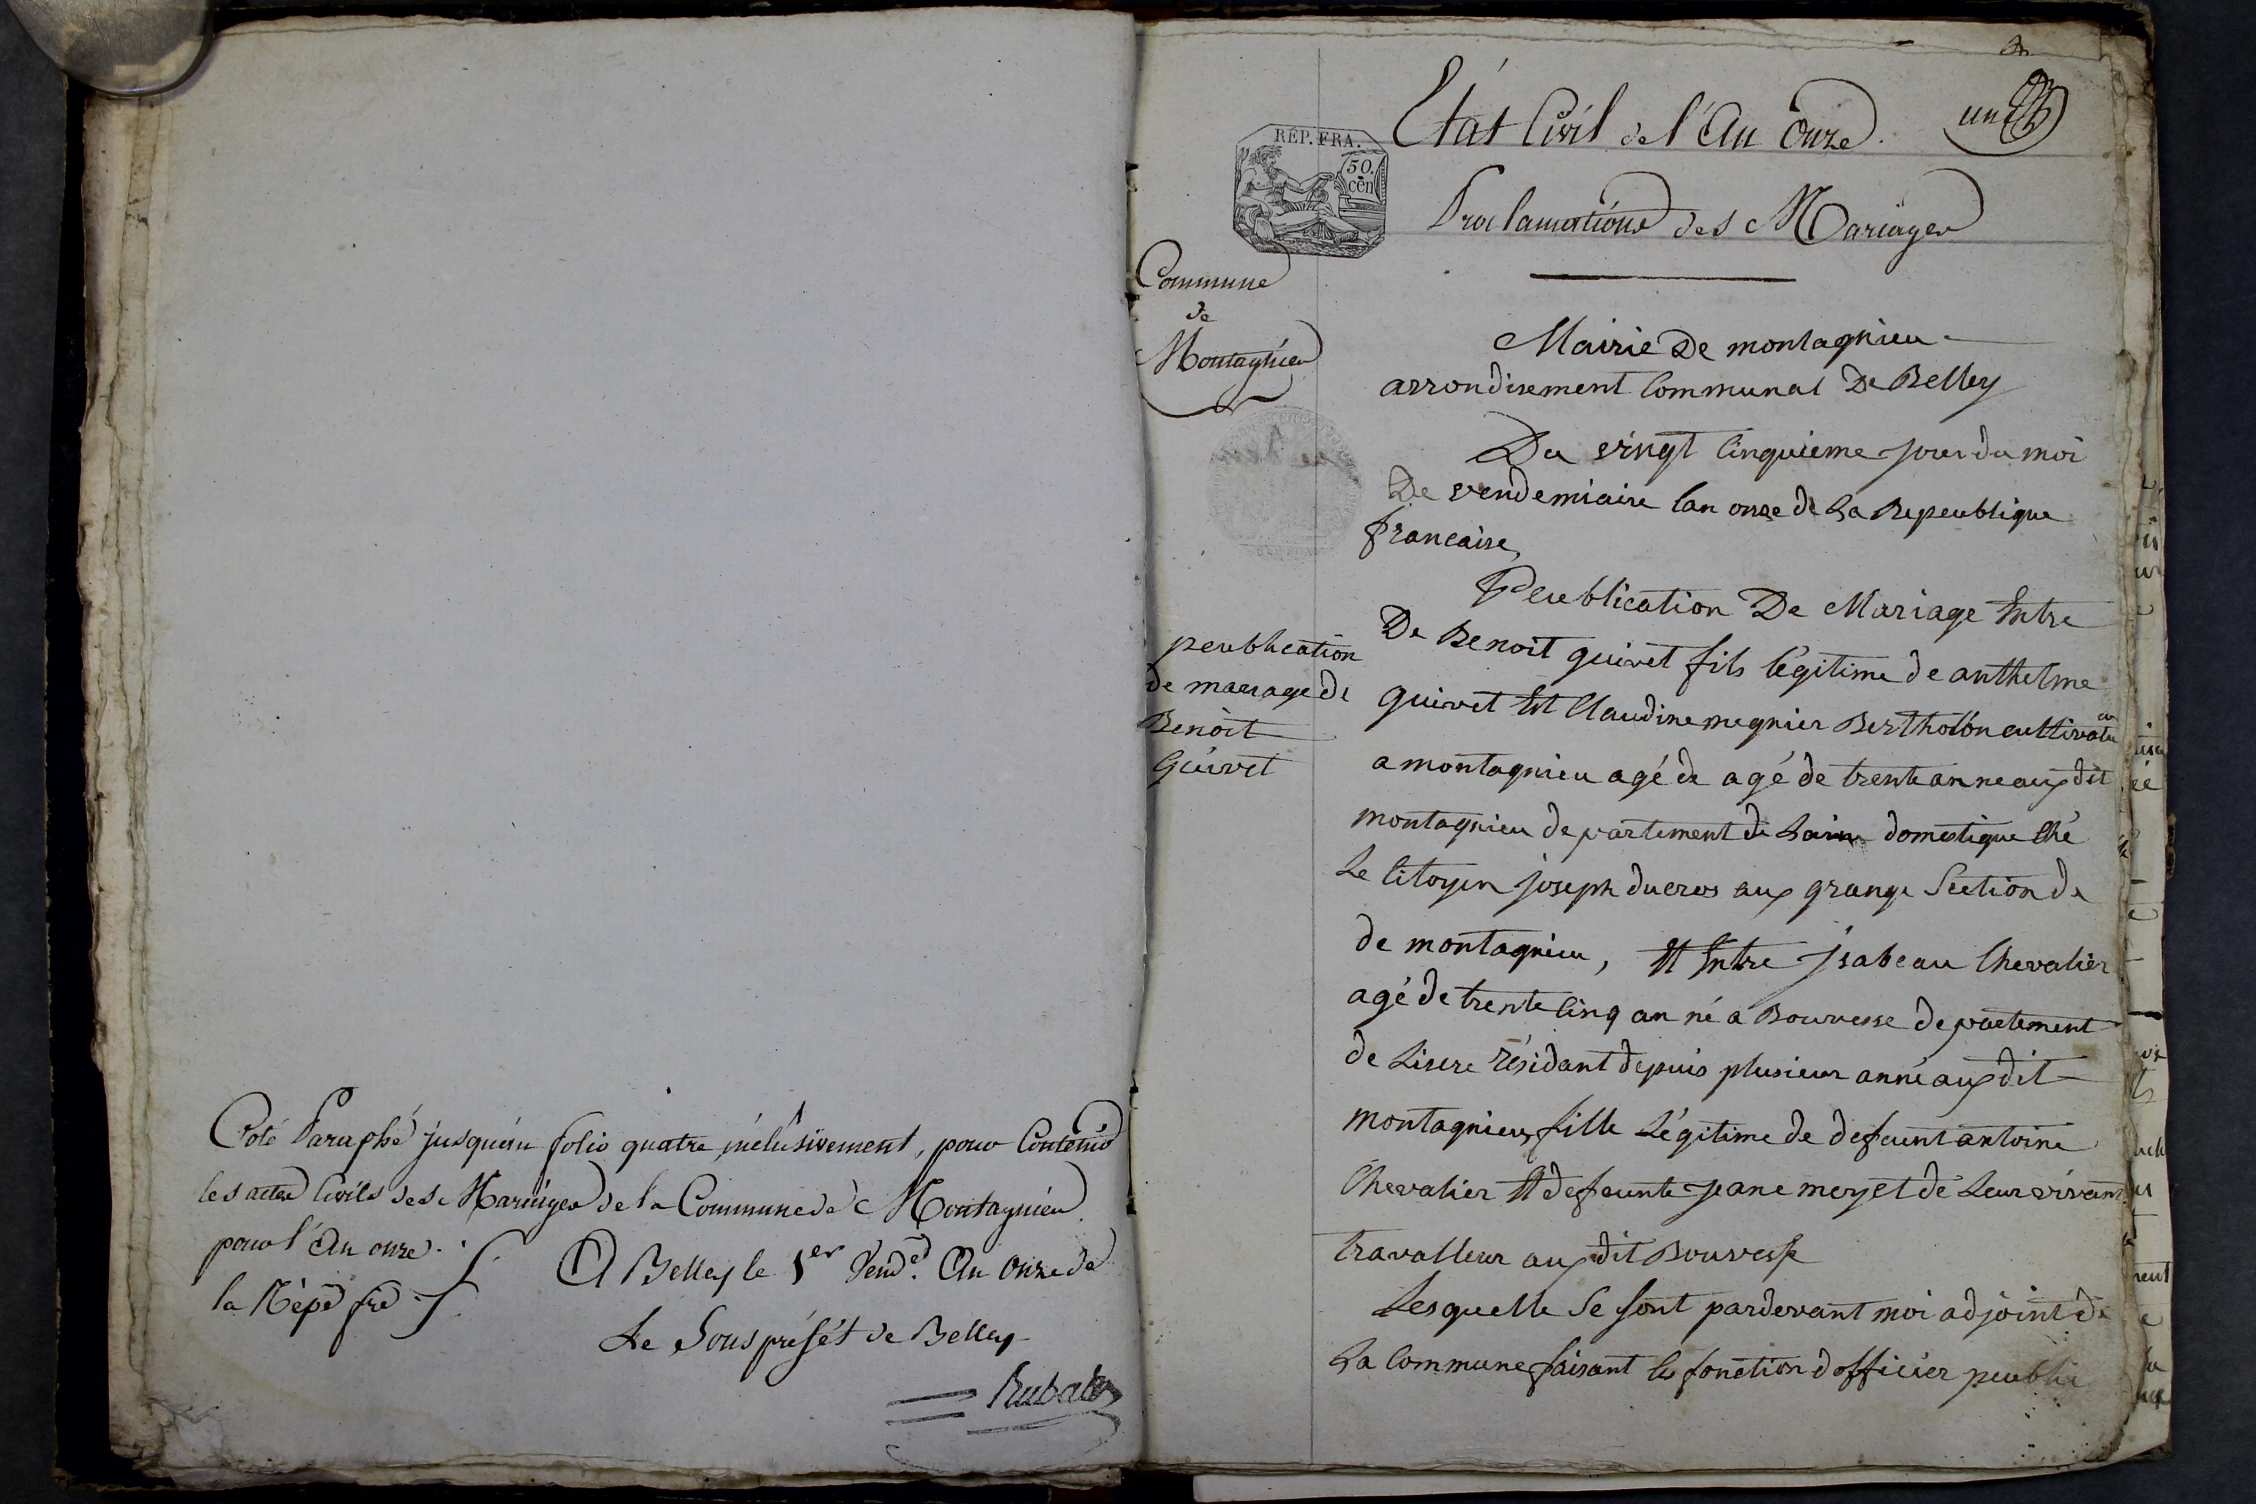 Coté Paraphé jusqu'au folio quatre inclusivement, pour Contenir
les actes Civils des Mariages de la Commune de Montagnieu
pour l'An onze.
A Belley le 1er Vend.e An Onze de
la Rép.e fr.e
Le Sous préfét de Belley
Rubat
un
Etat Civil de l'An Onze.
RÉP. FRA.
50.
cen
Proclamations des Mariages
Commune
de
Montagnieu
Mairie De montagnieu
arrondisement Communal De Belley
Du vingt Cinquieme jour du moi
De vendemiaire lan onze de La Republique
francaise
Peublication De Mariage Entre
peublication
de mariage de
Benoit
Guivet
De Benoit guivet fils légitime de anthelme
guivet Et Claudine megnier Bertholon cultivateur
a montagnieu agé de agé de trente anne aux dit
montagnieu departement de Lain domestique Ché
Le Citoyen joseph ducros aux grange Section de
de montagnieu, Et Entre jsabeau Chevalier
agé de trente Cinq an né a Bouvesse departement
de Lisere résidant depuis plusieur anné aux dit
montagnieu fille Légitime de defeunt antoine
Chevalier Et defeunte jeane meyet de Leur vivant
travalleur aux dit Bouvesse
Lesquelle Se Sont pardevant moi adjoint de
La Commune faisant les fonction dofficier peublic